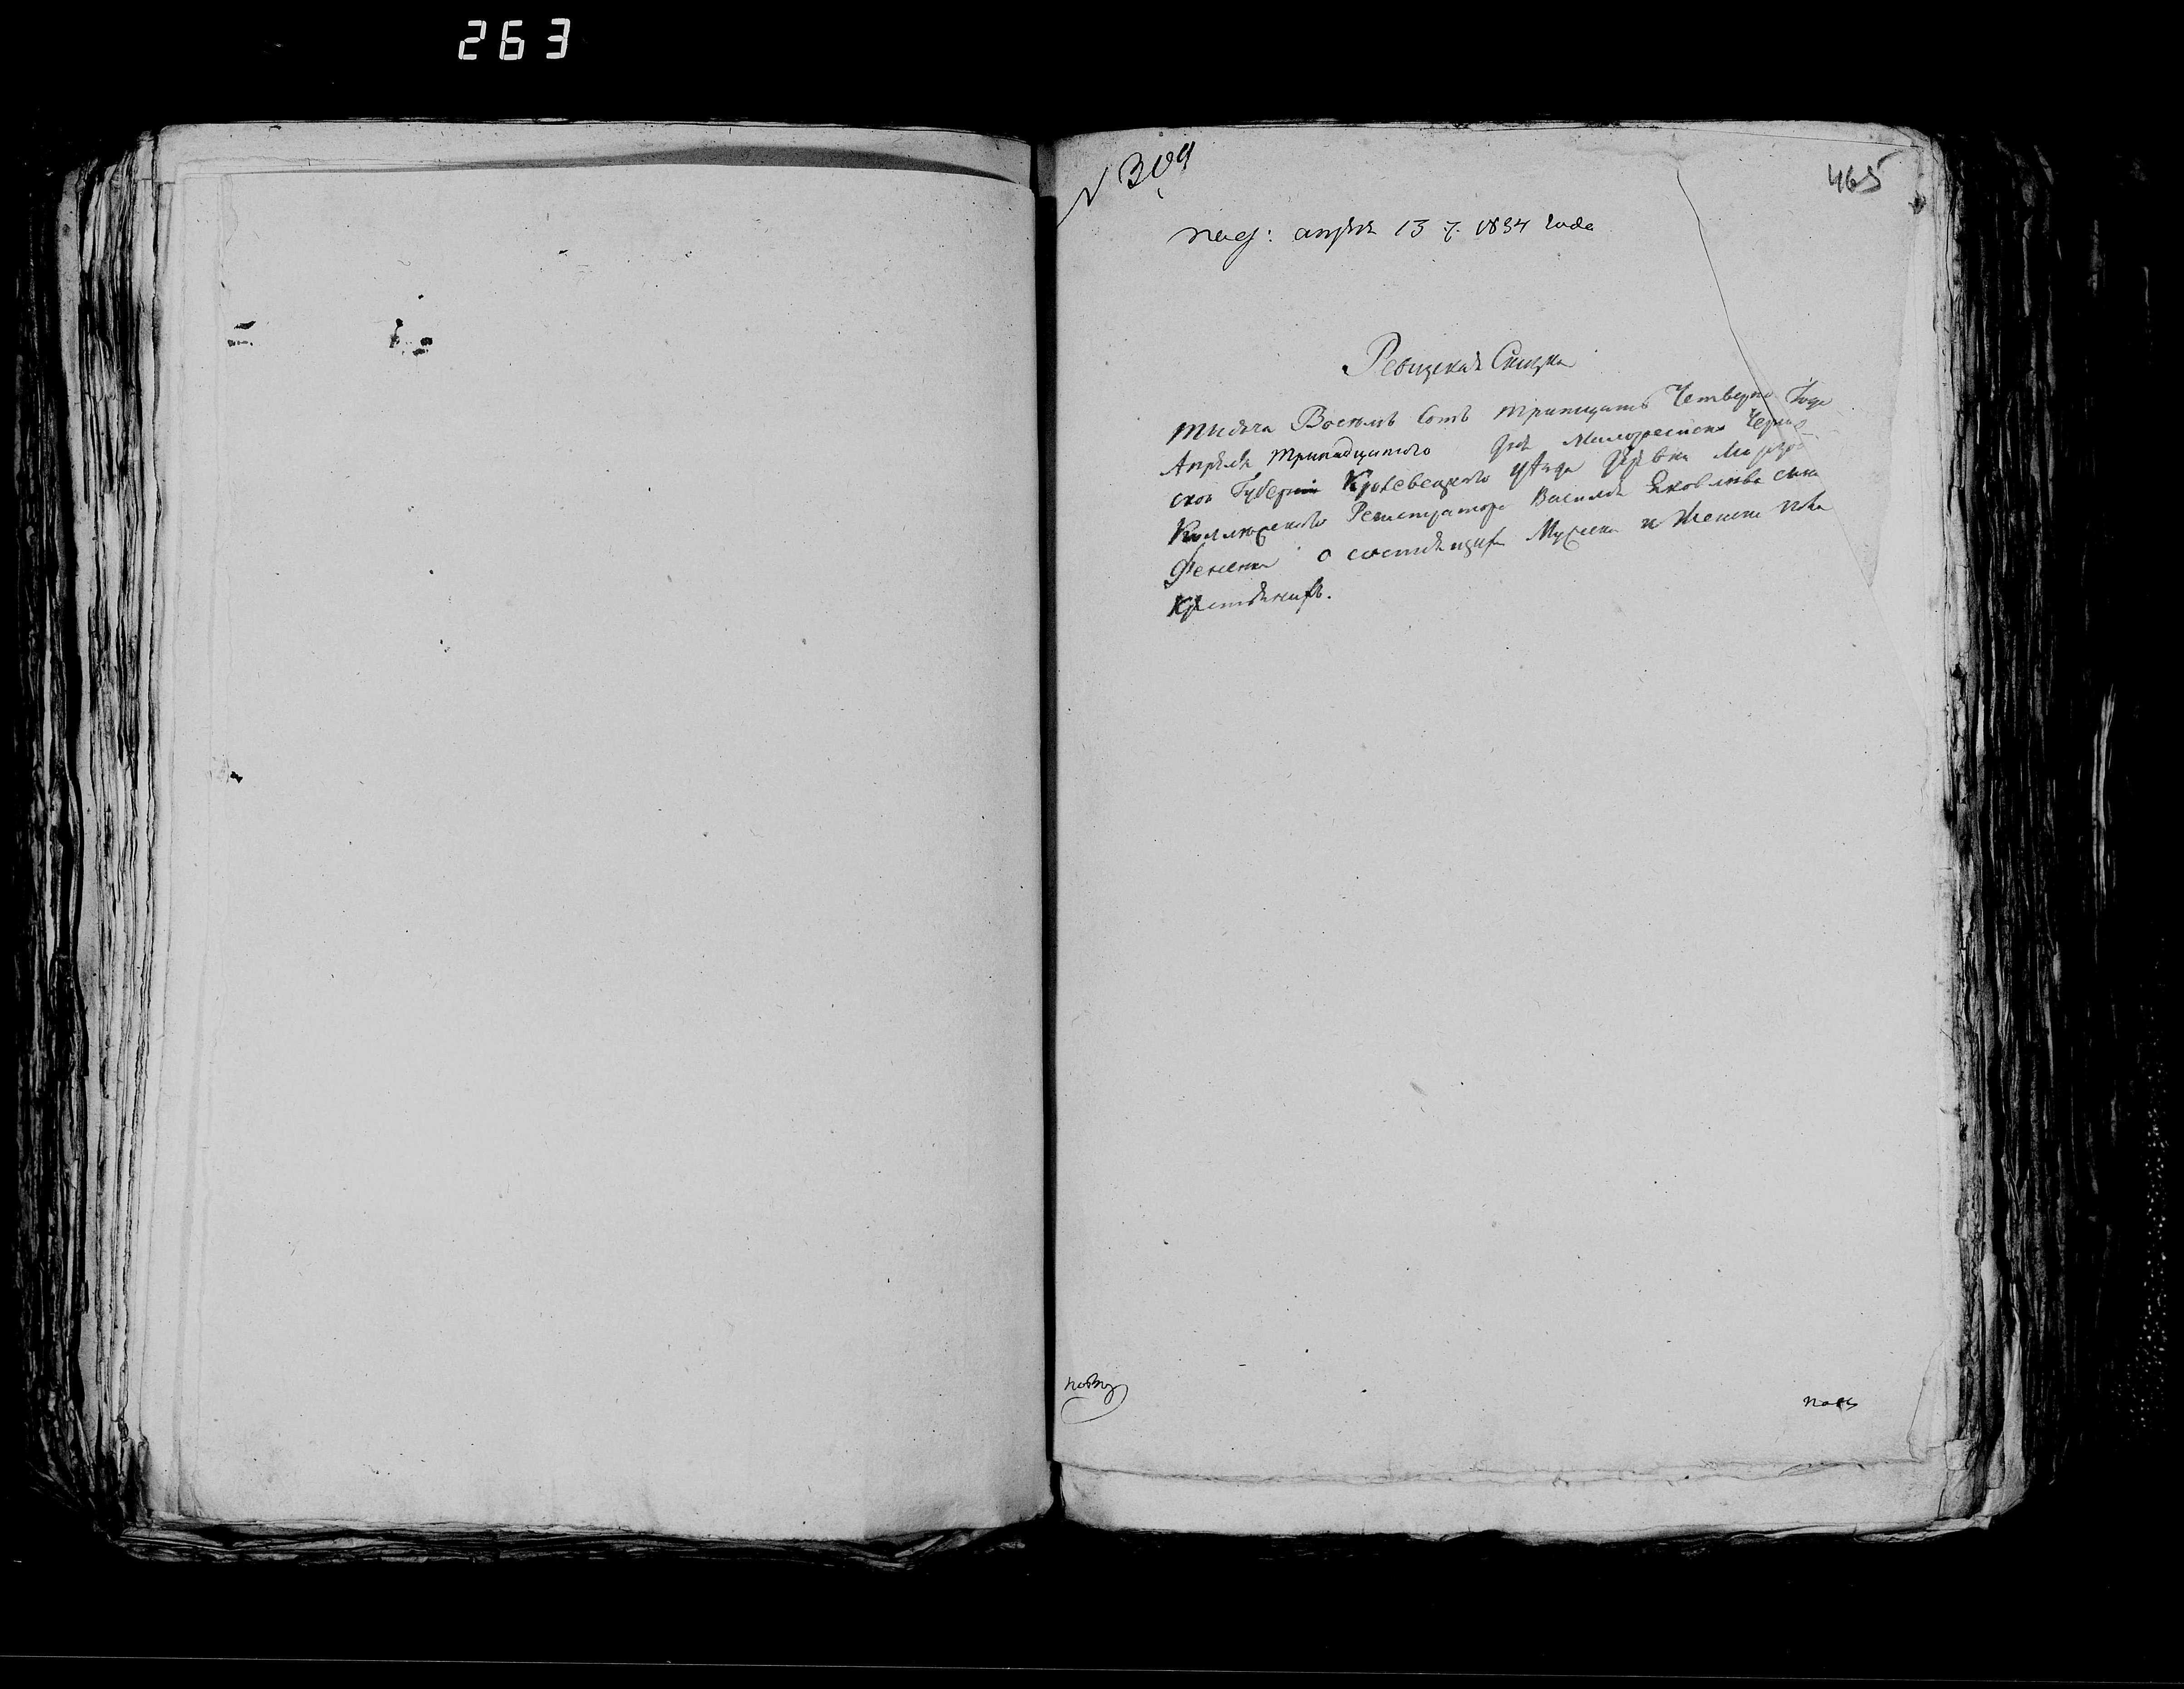 263
N 309
465
под: апреля 13 д. 1834 года
Ревизская Сказка
тисяча Восемь Сотъ тритцать Четверто Года
Апреля тринадцатого дня Малороссиско Черниго
ской Губернии Кролевецкого уезда
Коллежского Регистратора Василия Яковлева сина
о состоящих Мужеска и Женска пола
Крестянихъ.